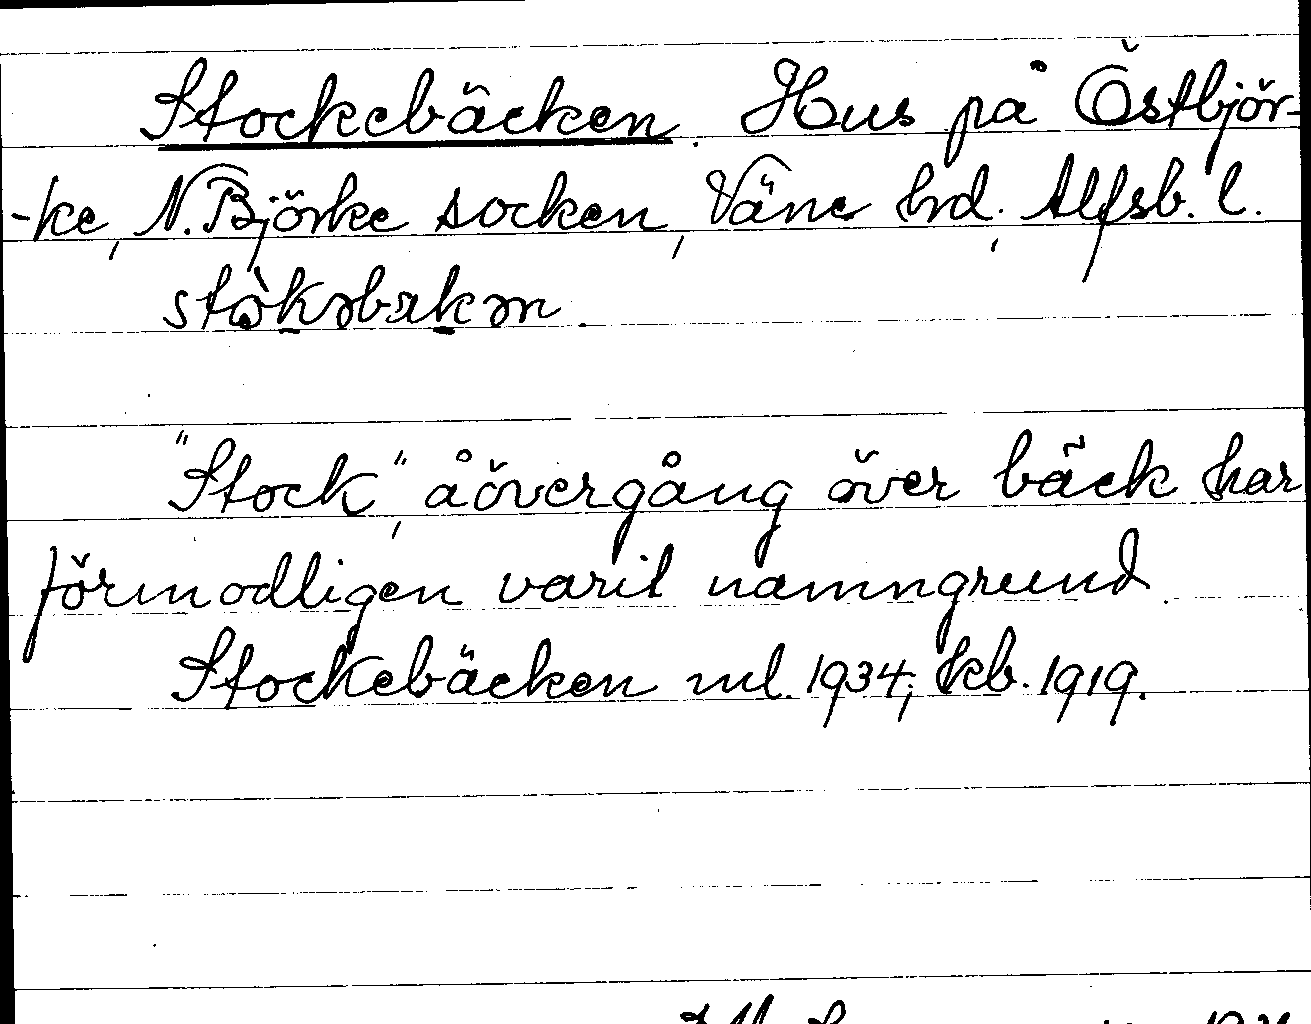 Stockebäcken. Hus på Östbjör-
-ke, N. Björke socken, Väne hrd., Alfsb. l.
stòkəbækən.
"Stock", åövergång över bäck har
förmodligen varit namngrund.
Stockebäcken ml. 1934; kb. 1919.